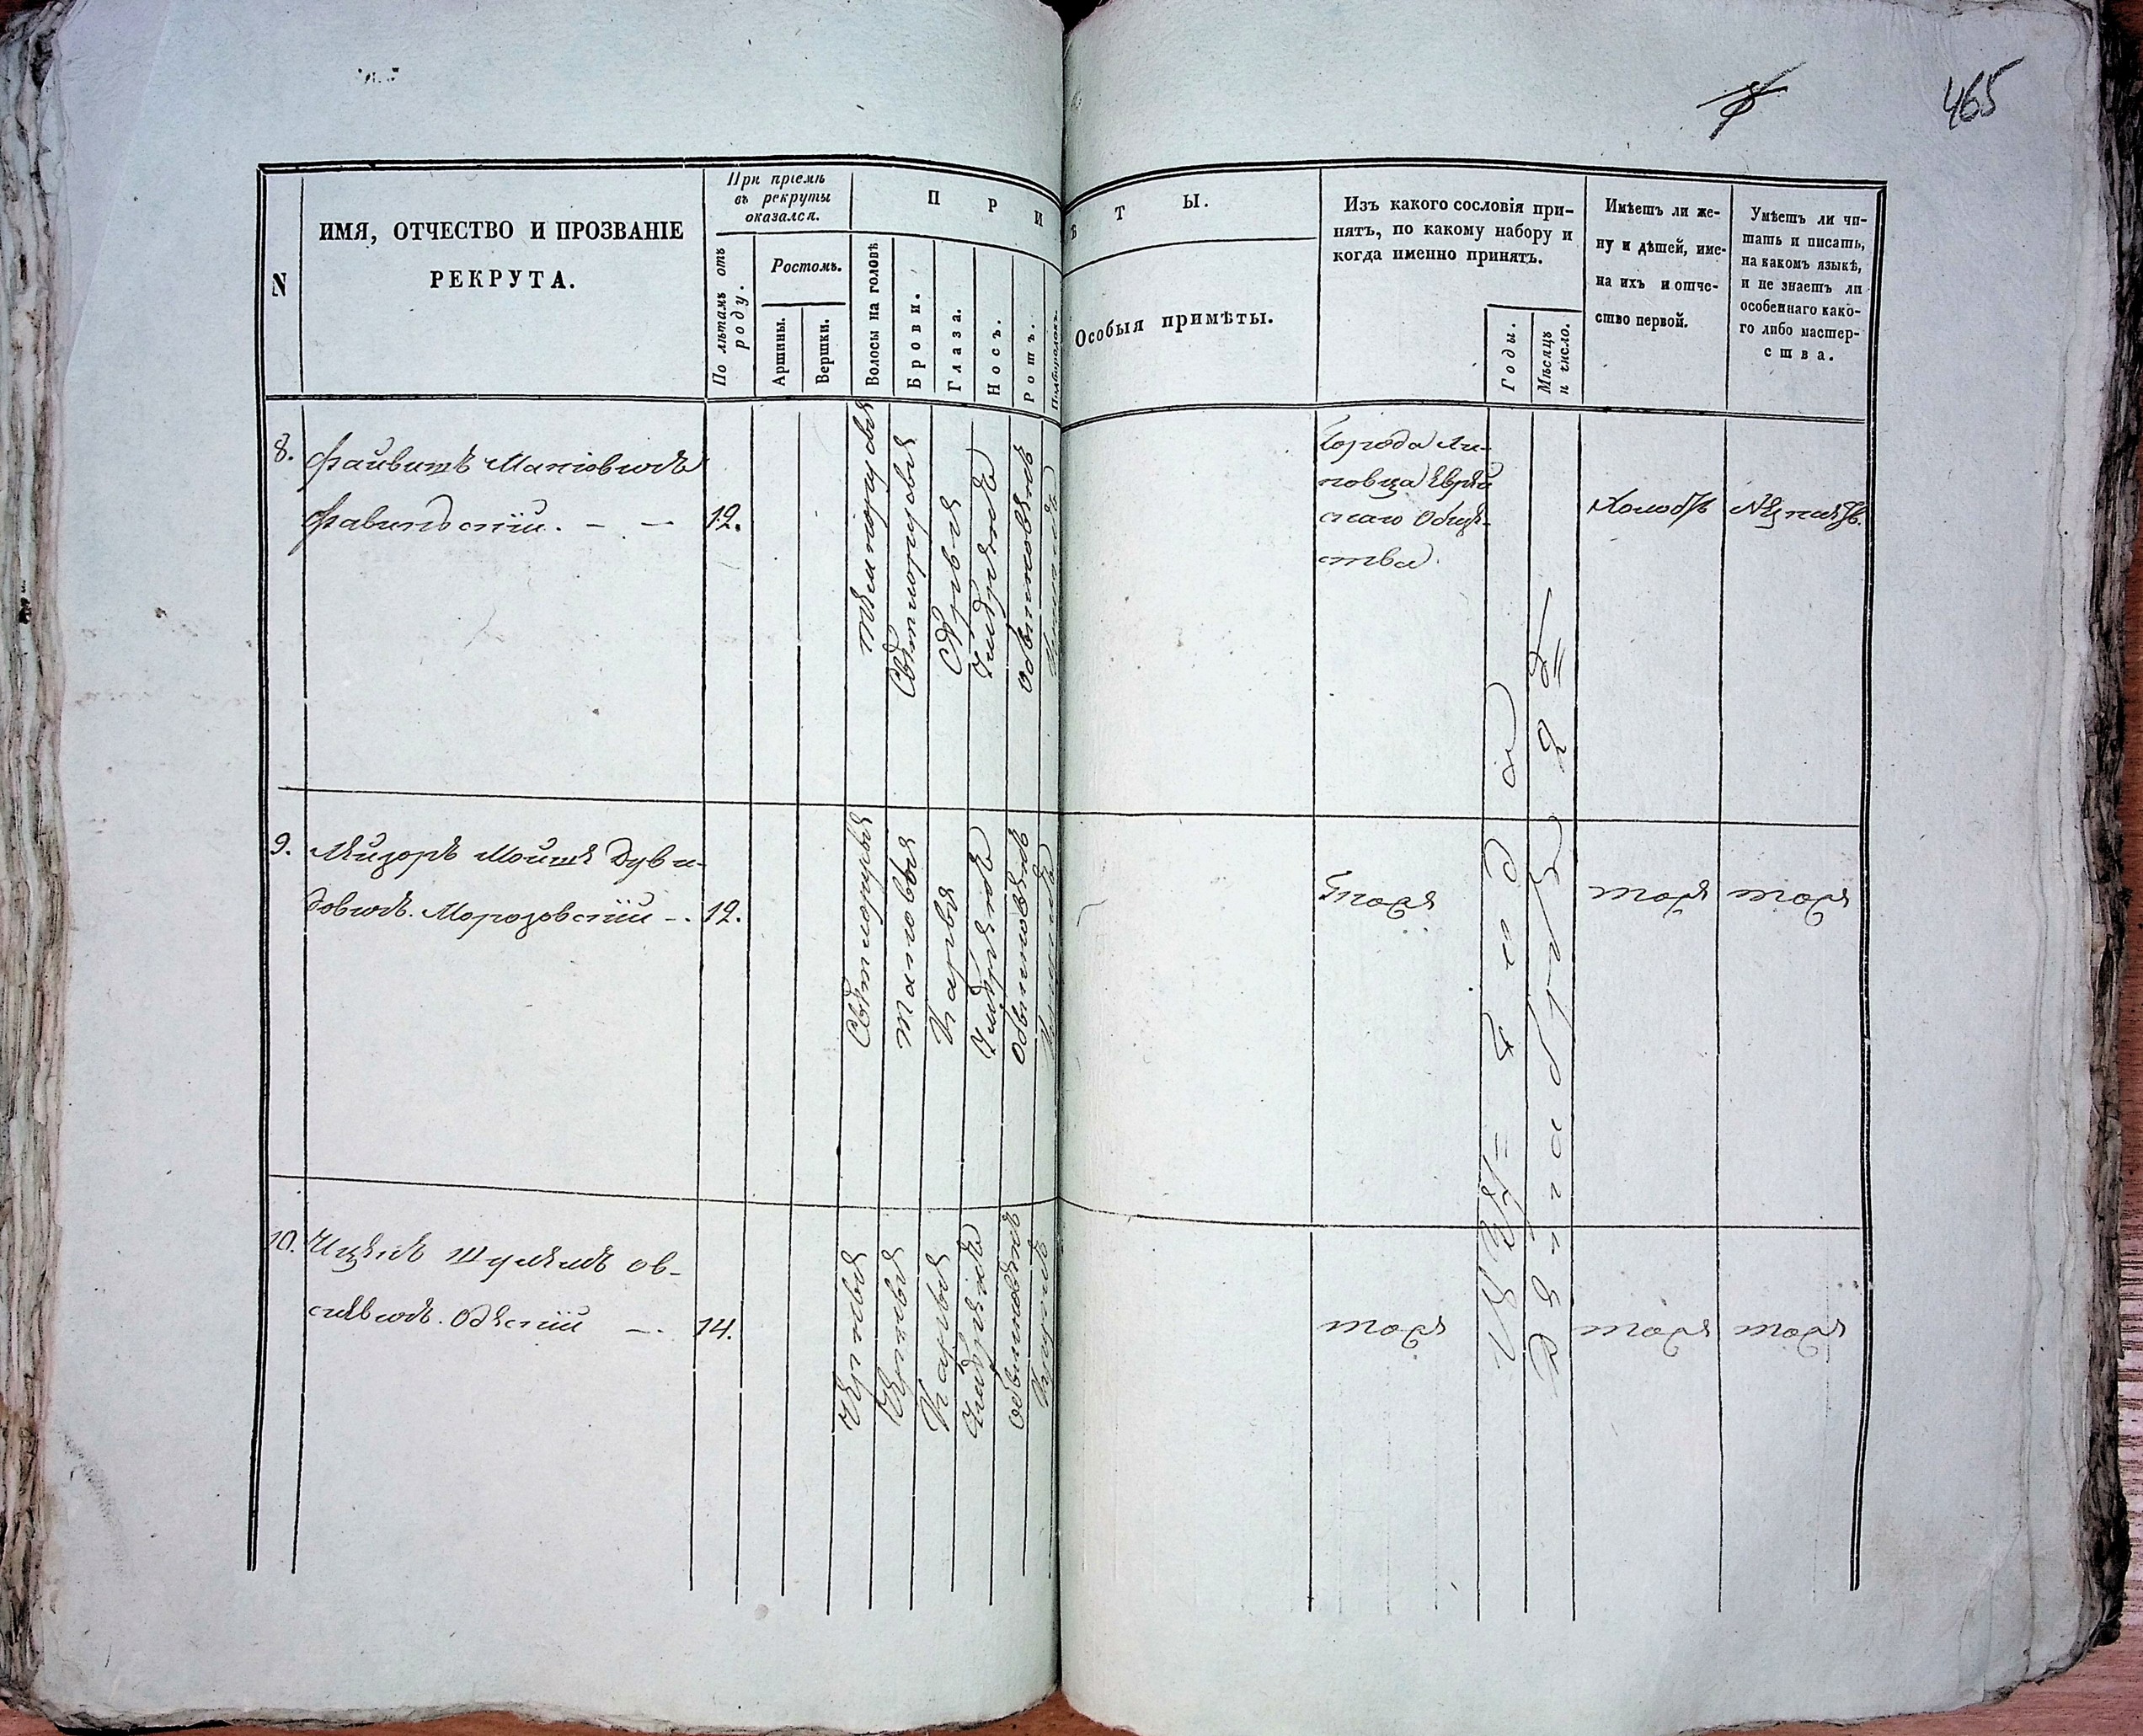 465
N
ИМЯ, ОТЧЕСТВО И ПРОЗВАНІЕ
РЕКРУТА.
При пріемѣ
въ рекруты
оказался.
По лѣтамъ отъ
роду.
Ростомъ.
Аршины.
Вершки.
ПРИМѢТЫ.
Волосы на головѣ
Брови.
Глаза.
Носъ.
Ротъ.
Подбородокъ.
Особыя примѣты.
Изъ какого сословія при-
нятъ, по какому набору и
когда именно принятъ.
Годы.
Мѣсяцъ
и число.
Имѣетъ ли же-
ну и дѣтей, име-
на ихъ и отче-
ство первой.
Умѣетъ ли чи-
тать и писать,
на какомъ языкѣ,
и не знаетъ ли
особеннаго како-
го либо мастер-
ства.
8.
Файвишъ
12.
Темнорусыя
Свѣтлорусыя
Сѣрыя
Умѣренъ
обыкновенъ
Города Ли-
повца Еврей
скаго Обще-
ства
Холостъ
Неумѣетъ
9.
Лейзоръ Мошъ Дуви-
довичъ Морозовскій -. 12.
Свѣтлорусыя
таковыя
Карія
Умѣренъ
обыкновенъ
Тоже
тоже
тоже
10.
Ицекъ Шулемъ ов-
сіевичъ Одескій -. 14.
Черныя
Черныя
Карія
Умѣренъ
обыкновенъ
тоже
Года
Декабря
тоже
тоже